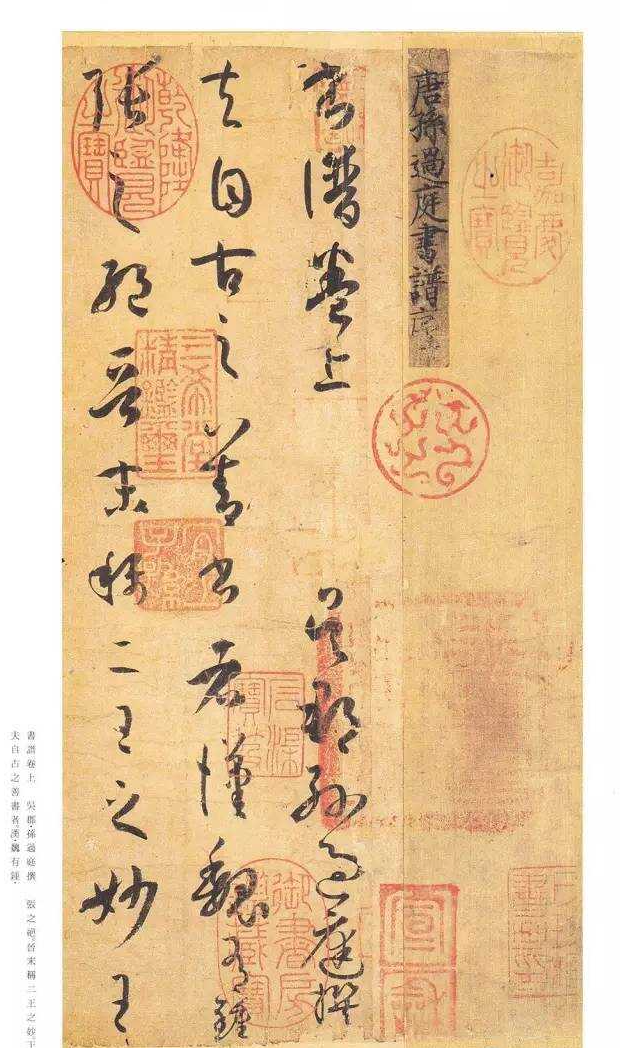 嘉慶御覽之寶
唐孫過庭書譜序
宣和
書譜卷上 吳郡孫過庭撰
夫自古之善書者漢魏有鍾
張之絕晉末稱二王之妙王
乾隆御覽之寶
三希堂精鑑璽
宜子孫
石渠寶笈
御書房鑑藏寶
書譜卷上 吳郡孫過庭撰 張之絕。晉末稱二王之妙。王
夫自古之善書者。漢魏有鍾